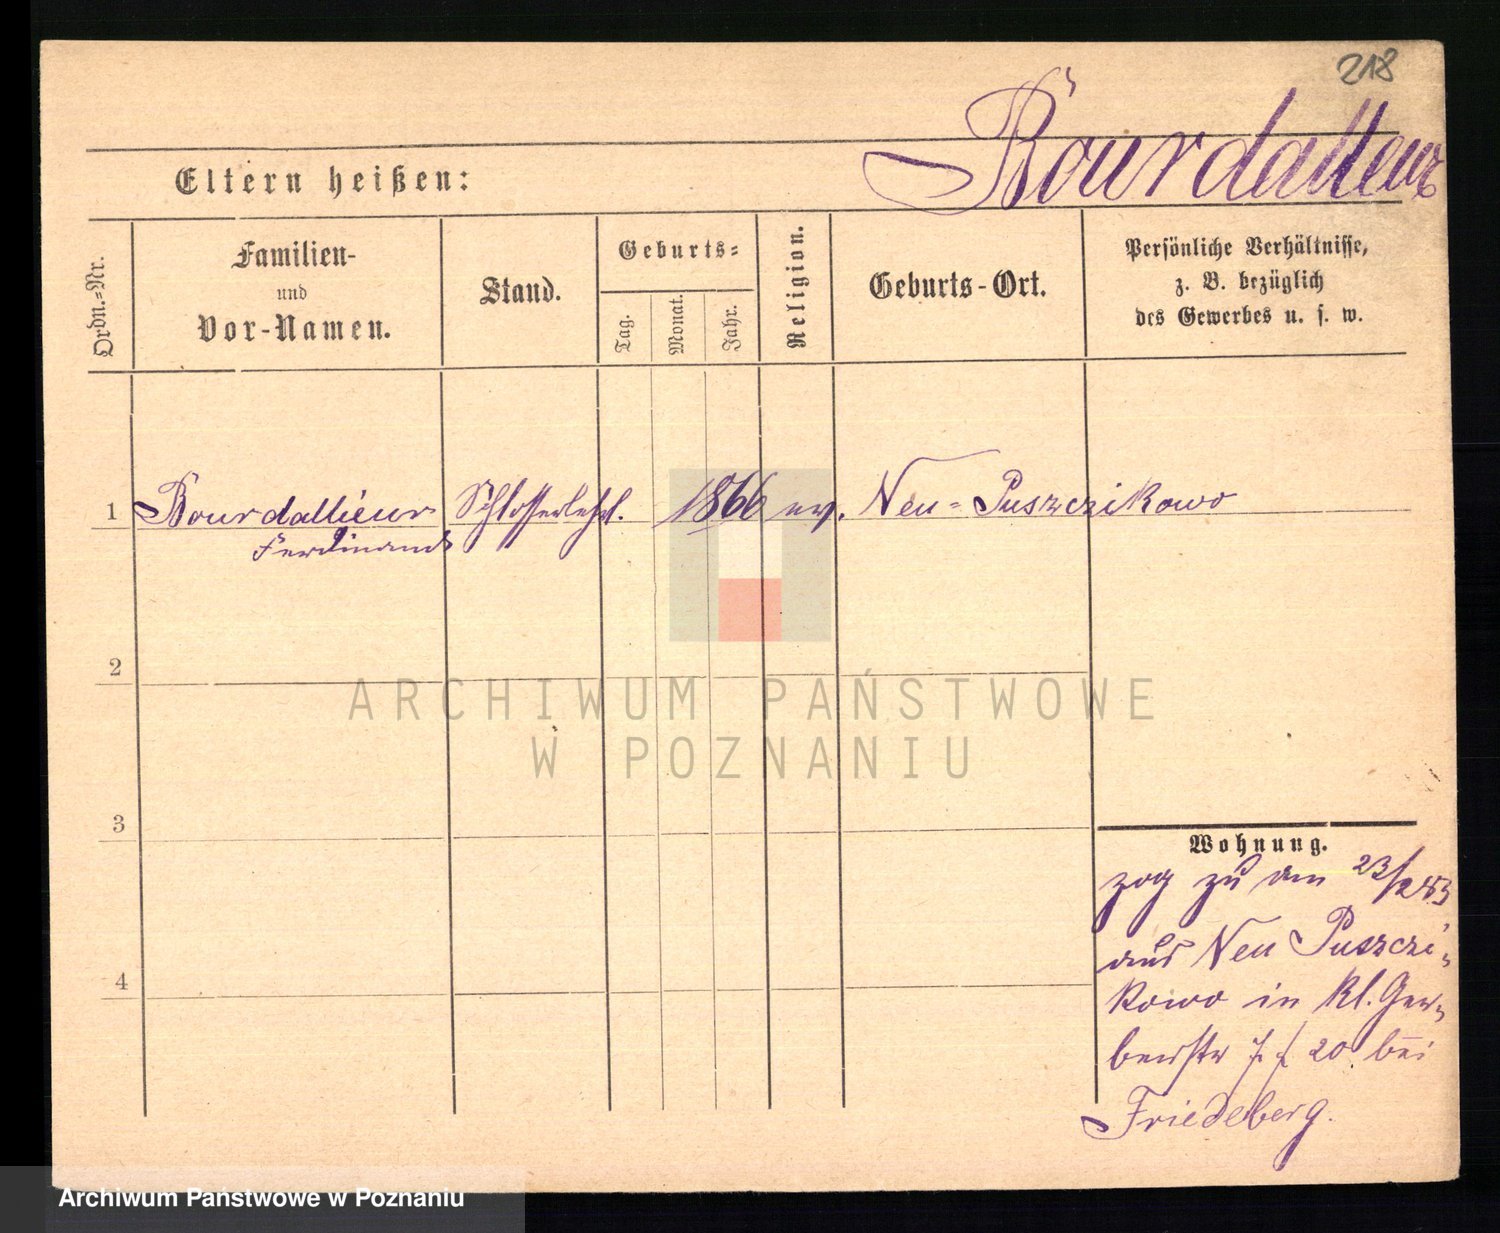 218
Bourdallieur
Eltern heißen:
Ordn.=Nr.
Familien-
und
Vor-Namen.
Stand.
Geburts=
Tag.
Monat.
Jahr.
Religion.
Geburts-Ort.
Persönliche Verhältnisse,
z. B. bezüglich
des Gewerbes u. s. w.
1 Bourdallieur Schlosserlehrl. 1866 ev. Neu=Puszczikowo
Ferdinand
2
ARCHIWUM PAŃSTWOWE
W POZNANIU
3
Wohnung.
zog zu am 23/2 83
aus Neu Puszczi-
kowo in kl. Ger-
berstr 20 bei
4
Friedeberg.
Archiwum Państwowe w Poznaniu